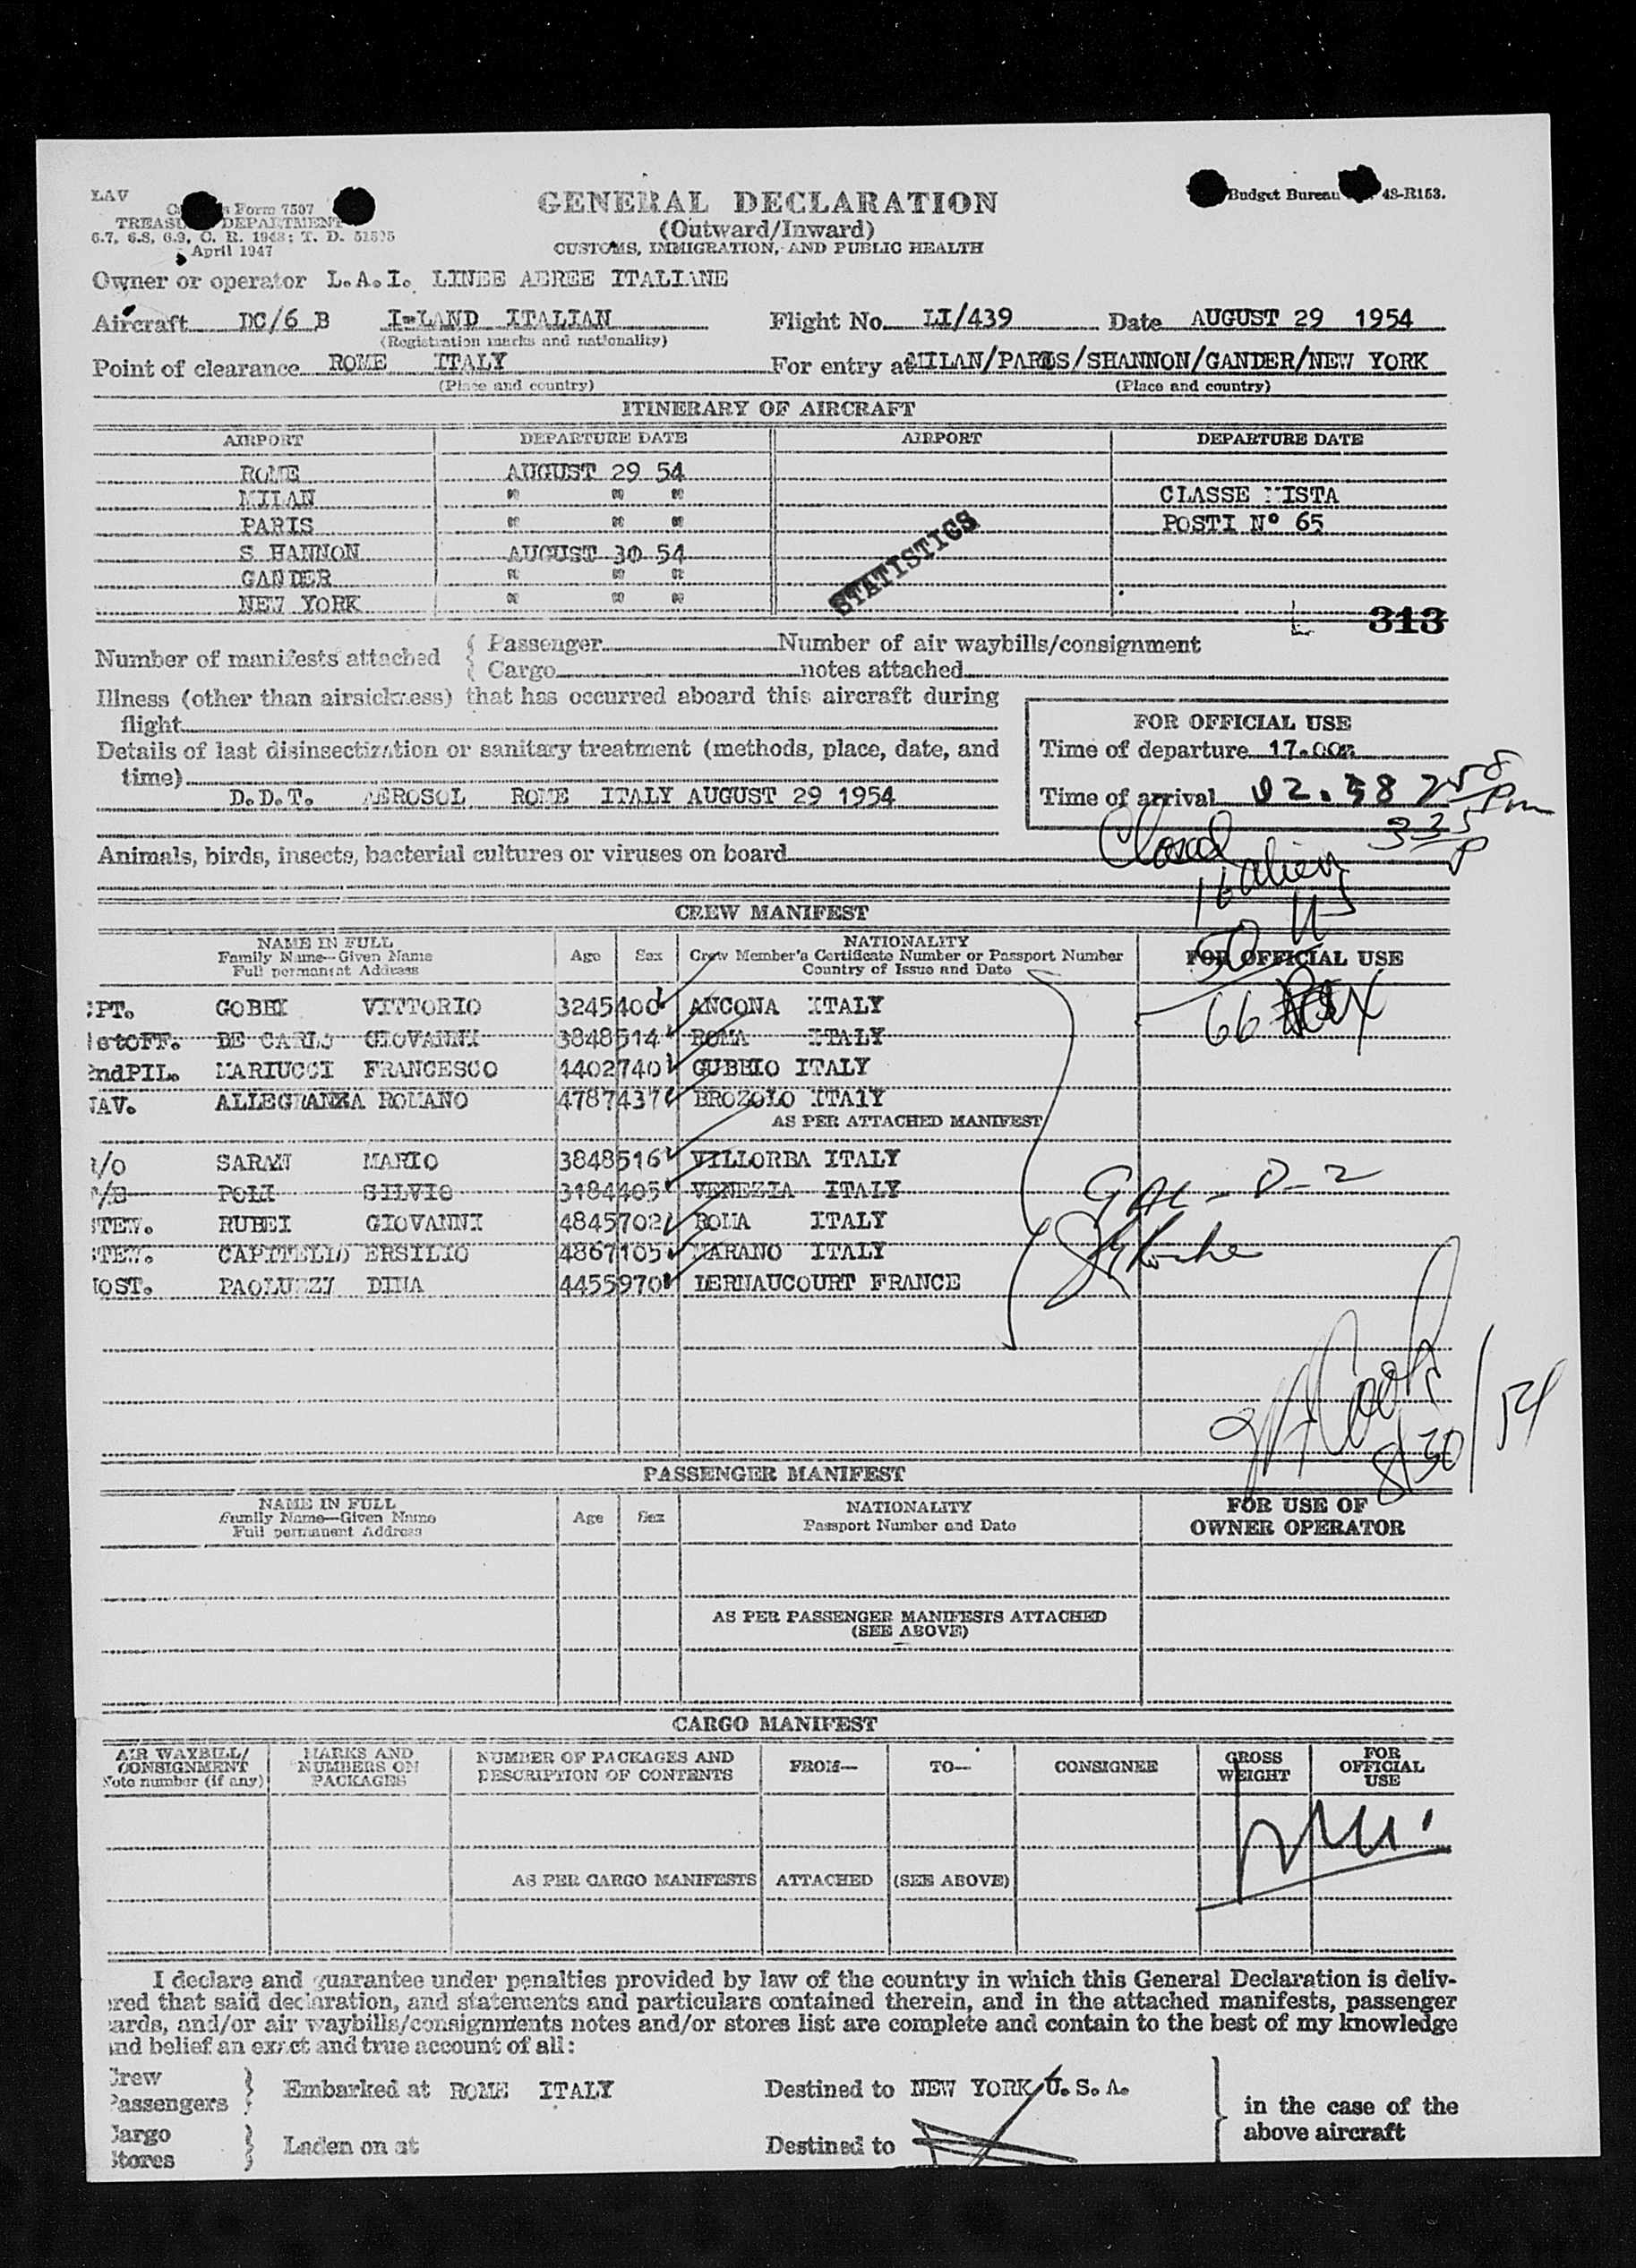 LAV
Form 7507
TREASU DEPARTMENT
6.7, 6.8, 6.9, C. R. 1943; T. D. 51595
April 1947
GENERAL DECLARATION
(Outward/Inward)
CUSTOMS, IMMIGRATION, AND PUBLIC HEALTH
Budget Bureau 48-R153.
Owner or operator L.A.I. LINEE AEREE ITALIANE
Aircraft DC/6 B I-LAND ITALIAN Flight No. LI/439 Date AUGUST 29 1954
(Registration marks and nationality)
Point of clearance ROME ITALY For entry at MILAN/PARIS/SHANNON/GANDER/NEW YORK
(Place and country) (Place and country)
ITINERARY OF AIRCRAFT
AIRPORT DEPARTURE DATE AIRPORT DEPARTURE DATE
ROME AUGUST 29 54
MILAN " " " CLASSE MISTA
PARIS " " " POSTI N° 65
S HANNON AUGUST 30 54
GANDER " " "
NEW YORK " " "
STATISTICS
313
Number of manifests attached { Passenger Number of air waybills/consignment
{ Cargo notes attached
Illness (other than airsickness) that has occurred aboard this aircraft during
flight
Details of last disinsectization or sanitary treatment (methods, place, date, and
time)
D.D.T. AEROSOL ROME ITALY AUGUST 29 1954
FOR OFFICIAL USE
Time of departure 17.00
Time of arrival 02.58 2 58 Pm
3 35 P
Animals, birds, insects, bacterial cultures or viruses on board
Closed
16 aliens
50 US
66 Pax
CREW MANIFEST
NAME IN FULL
Family Name—Given Name
Full permanent Address
Age Sex
NATIONALITY
Crew Member's Certificate Number or Passport Number
Country of Issue and Date
FOR OFFICIAL USE
CPT. GOBBI VITTORIO 3245400 ANCONA ITALY
1stOFF. DE CARLO GIOVANNI 3848514 ROMA ITALY
2ndPIL. MARIUCCI FRANCESCO 4402740 GUBBIO ITALY
NAV. ALLEGRANZA ROMANO 4787437 BROZOLO ITALY
AS PER ATTACHED MANIFEST
R/O SARAN MARIO 3848516 VILLORBA ITALY
POLI SILVIO 3184405 VENEZIA ITALY
STEW. RUBEI GIOVANNI 4845702 ROMA ITALY
STEW. CAPITELLO ERSILIO 4867105 MARANO ITALY
HOST. PAOLUZZI DINA 4455970 LERNAUCOURT FRANCE
GAL-D-2
8/30/54
PASSENGER MANIFEST
NAME IN FULL
Family Name—Given Name
Full permanent Address
Age Sex
NATIONALITY
Passport Number and Date
FOR USE OF
OWNER OPERATOR
AS PER PASSENGER MANIFESTS ATTACHED
(SEE ABOVE)
CARGO MANIFEST
AIR WAYBILL/
CONSIGNMENT
Note number (if any)
MARKS AND
NUMBERS ON
PACKAGES
NUMBER OF PACKAGES AND
DESCRIPTION OF CONTENTS
FROM— TO— CONSIGNEE
GROSS
WEIGHT
FOR
OFFICIAL
USE
AS PER CARGO MANIFESTS ATTACHED (SEE ABOVE)
I declare and guarantee under penalties provided by law of the country in which this General Declaration is deliv-
ered that said declaration, and statements and particulars contained therein, and in the attached manifests, passenger
cards, and/or air waybills/consignments notes and/or stores list are complete and contain to the best of my knowledge
and belief an exact and true account of all:
Crew
Passengers } Embarked at ROME ITALY Destined to NEW YORK U.S.A.
Cargo
Stores } Laden on at Destined to
} in the case of the
above aircraft